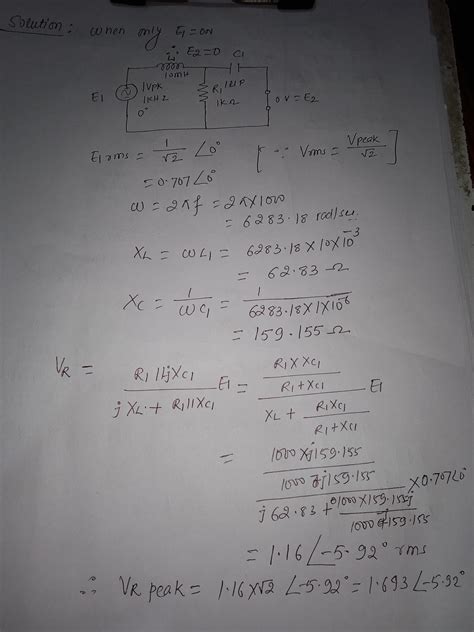 Solution: When only E1 = ON
E2=0
L1
10mH
C1
1µF
E1
1Vpk
1KHZ
0°
R1
1KΩ
0V = E2
E1 rms = 1/√2 ∠0° [∵ Vrms = Vpeak/√2]
= 0.707∠0°
ω = 2πf = 2π×1000
= 6283.18 rad/sec
XL = ωL1 = 6283.18×10×10^-3
= 62.83 Ω
XC = 1/ωC1 = 1/6283.18×1×10^-6
= 159.155 Ω
VR = R1||jXC1 / jXL + R1||XC1 E1 = R1×XC1/R1+XC1 / XL + R1XC1/R1+XC1 E1
= 1000×j159.155/1000 j159.155 / j62.83 + 1000×159.155j/1000 j159.155 ×0.707∠0°
= 1.16∠-5.92° rms
∴ VR peak = 1.16×√2 ∠-5.92° = 1.693∠-5.92°